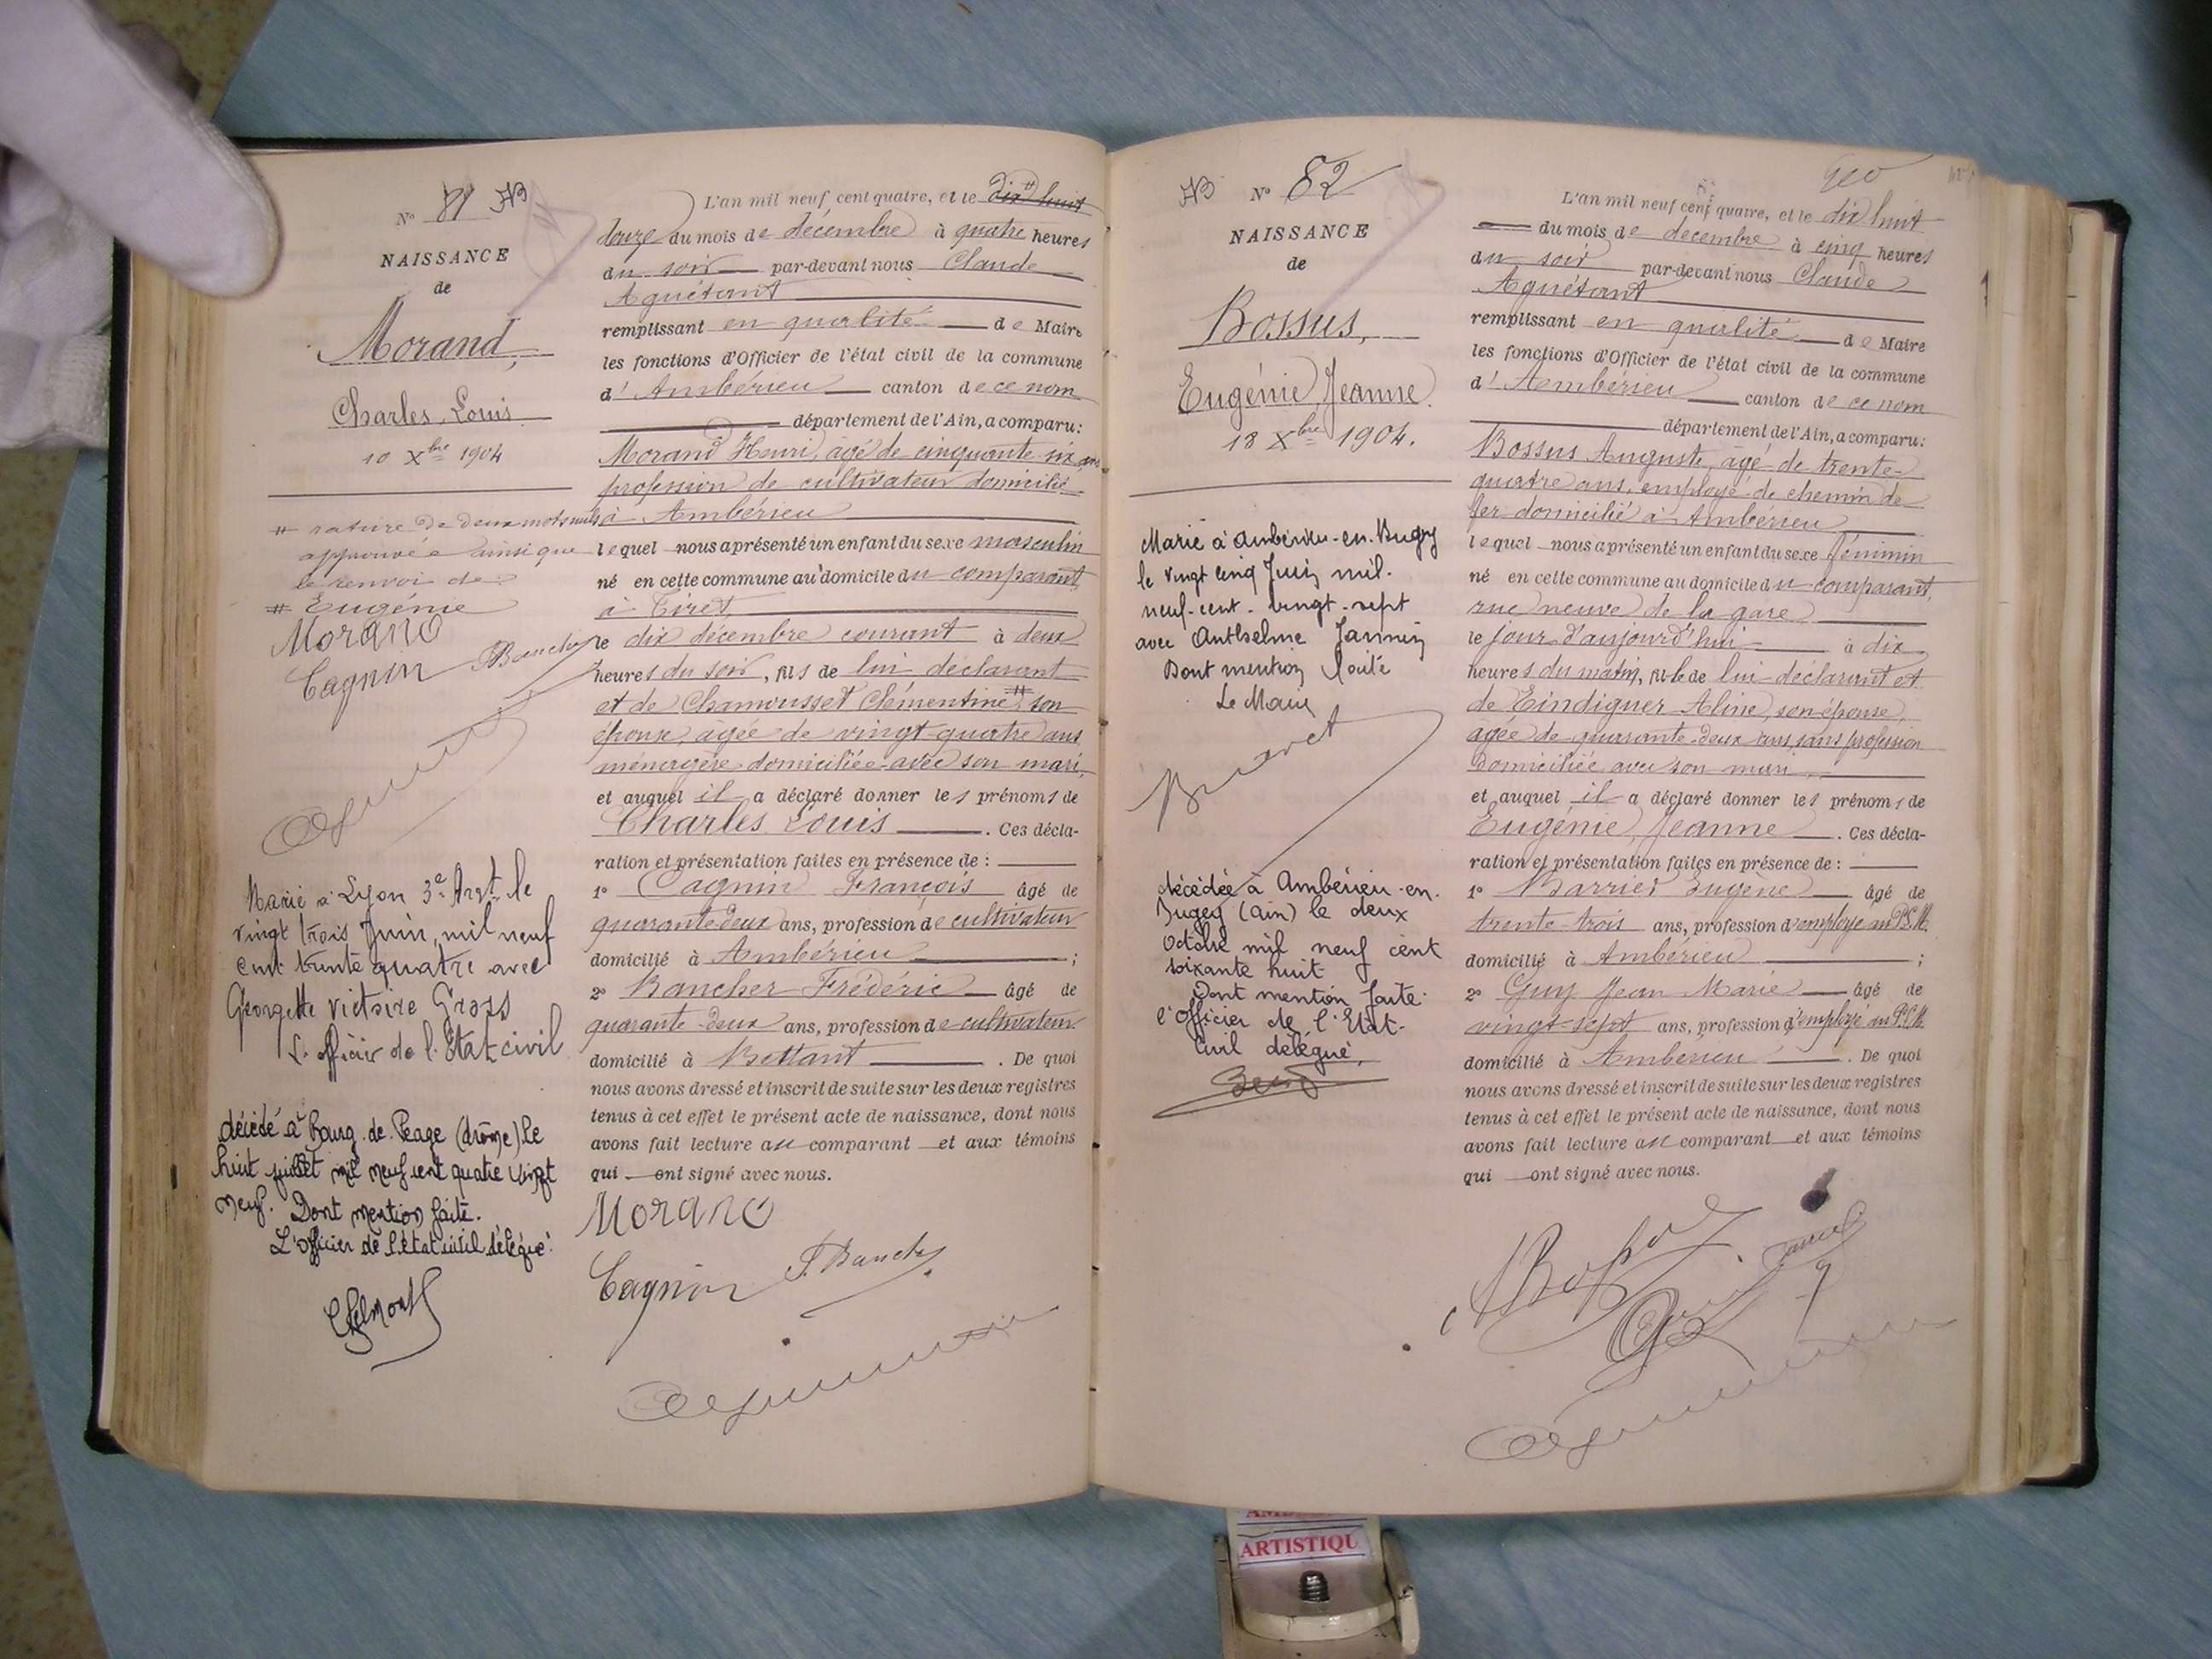 N° 81
NAISSANCE
de
Morand,
Charles Louis
10 Xbre 1904
# rature de deux mots nuls
approuvée ainsi que
le renvoi de
# Eugénie
Morand
Cagnin
Marié à Lyon 3e Arrt le
vingt trois Juin mil neuf
cent trente quatre avec
Georgette Victoire Gross
L'officier de l'Etat civil
décédé à Bourg-de-Péage (drôme) le
huit juillet mil neuf cent quatre vingt
neuf. Dont mention faite.
L'officier de l'état civil délégué.
L'an mil neuf cent quatre, et le dix huit
douze du mois de décembre à quatre heures
du soir par-devant nous Claude
Aguétant
remplissant en qualité de Maire
les fonctions d'Officier de l'état civil de la commune
d'Ambérieu canton de ce nom
département de l'Ain, a comparu:
Morand Henri, âgé de cinquante-six ans
profession de cultivateur domicilié
à Ambérieu
lequel nous a présenté un enfant du sexe masculin
né en cette commune au domicile du comparant,
à Tiret,
le dix décembre courant à deux
heures du soir, fils de lui déclarant
et de Chamousset Clémentine # son
épouse, âgée de vingt-quatre ans,
ménagère domiciliée avec son mari,
et auquel il a déclaré donner les prénoms de
Charles Louis. Ces décla-
ration et présentation faites en présence de :
1° Cagnin François âgé de
quarante-deux ans, profession de cultivateur
domicilié à Ambérieu ;
2° Bancher Frédéric âgé de
quarante-deux ans, profession de cultivateur
domicilié à Bettant. De quoi
nous avons dressé et inscrit de suite sur les deux registres
tenus à cet effet le présent acte de naissance, dont nous
avons fait lecture au comparant et aux témoins
qui ont signé avec nous.
Morand
Cagnin F. Bancher
N° 82
NAISSANCE
de
Bossus,
Eugénie, Jeanne.
18 Xbre 1904.
Marié à Ambérieu-en-Bugey
le vingt cinq Juin mil-
neuf-cent-vingt-sept
avec Anthelme Jannin
Dont mention faite
Le Maire
décédée à Ambérieu-en-
Bugey (Ain) le deux
Octobre mil neuf cent
soixante huit
Dont mention faite.
l'Officier de l'Etat-
Civil délégué,
L'an mil neuf cent quatre, et le dix huit
du mois de décembre à cinq heures
du soir par-devant nous Claude
Aguétant
remplissant en qualité de Maire
les fonctions d'Officier de l'état civil de la commune
d'Ambérieu canton de ce nom
département de l'Ain, a comparu:
Bossus Auguste, âgé de trente-
quatre ans, employé de chemin de
fer domicilié à Ambérieu
lequel nous a présenté un enfant du sexe féminin
né en cette commune au domicile du comparant,
rue neuve de la gare
le jour d'aujourd'hui à dix
heures du matin, fille de lui déclarant et
de Eindiguer Aline, son épouse,
âgée de quarante-deux ans, sans profession
domiciliée avec son mari,
et auquel il a déclaré donner les prénoms de
Eugénie, Jeanne. Ces décla-
ration et présentation faites en présence de :
1° Barrier Eugène âgé de
trente-trois ans, profession d'employé au P.L.M.
domicilié à Ambérieu ;
2° Guy Jean Marie âgé de
vingt-sept ans, profession d'employé au P.L.M.
domicilié à Ambérieu. De quoi
nous avons dressé et inscrit de suite sur les deux registres
tenus à cet effet le présent acte de naissance, dont nous
avons fait lecture au comparant et aux témoins
qui ont signé avec nous.
ARTISTIQU